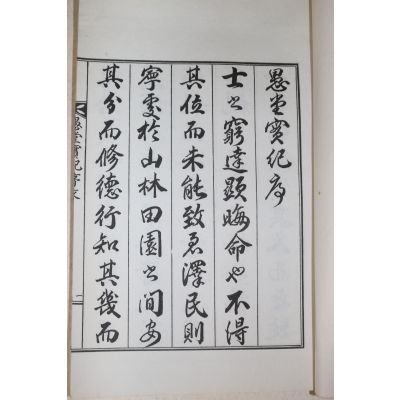 愚堂實紀序
士之窮達顯晦命也不得
其位而未能致君澤民則
寧處於山林田園之間安
其分而修德行知其幾而
愚堂實紀序文
一